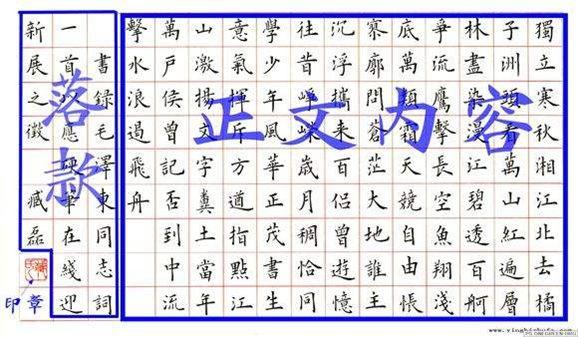 獨立寒秋湘江北去橘
子洲頭看萬山紅遍層
林盡染漫江碧透百舸
爭流鷹擊長空魚翔淺
底萬類霜天競自由悵
寥廓問蒼茫大地誰主
沉浮攜來百侣曾遊憶
往昔崢嶸歲月稠恰同
學少年風華正茂書生
意氣揮斥方遒指點江
山激揚文字糞土當年
萬戶侯曾記否到中流
擊水浪遏飛舟
書錄毛澤東同志詞
一首以應硬筆在綫迎
新展之徵 臧磊
正文内容
落款
印章